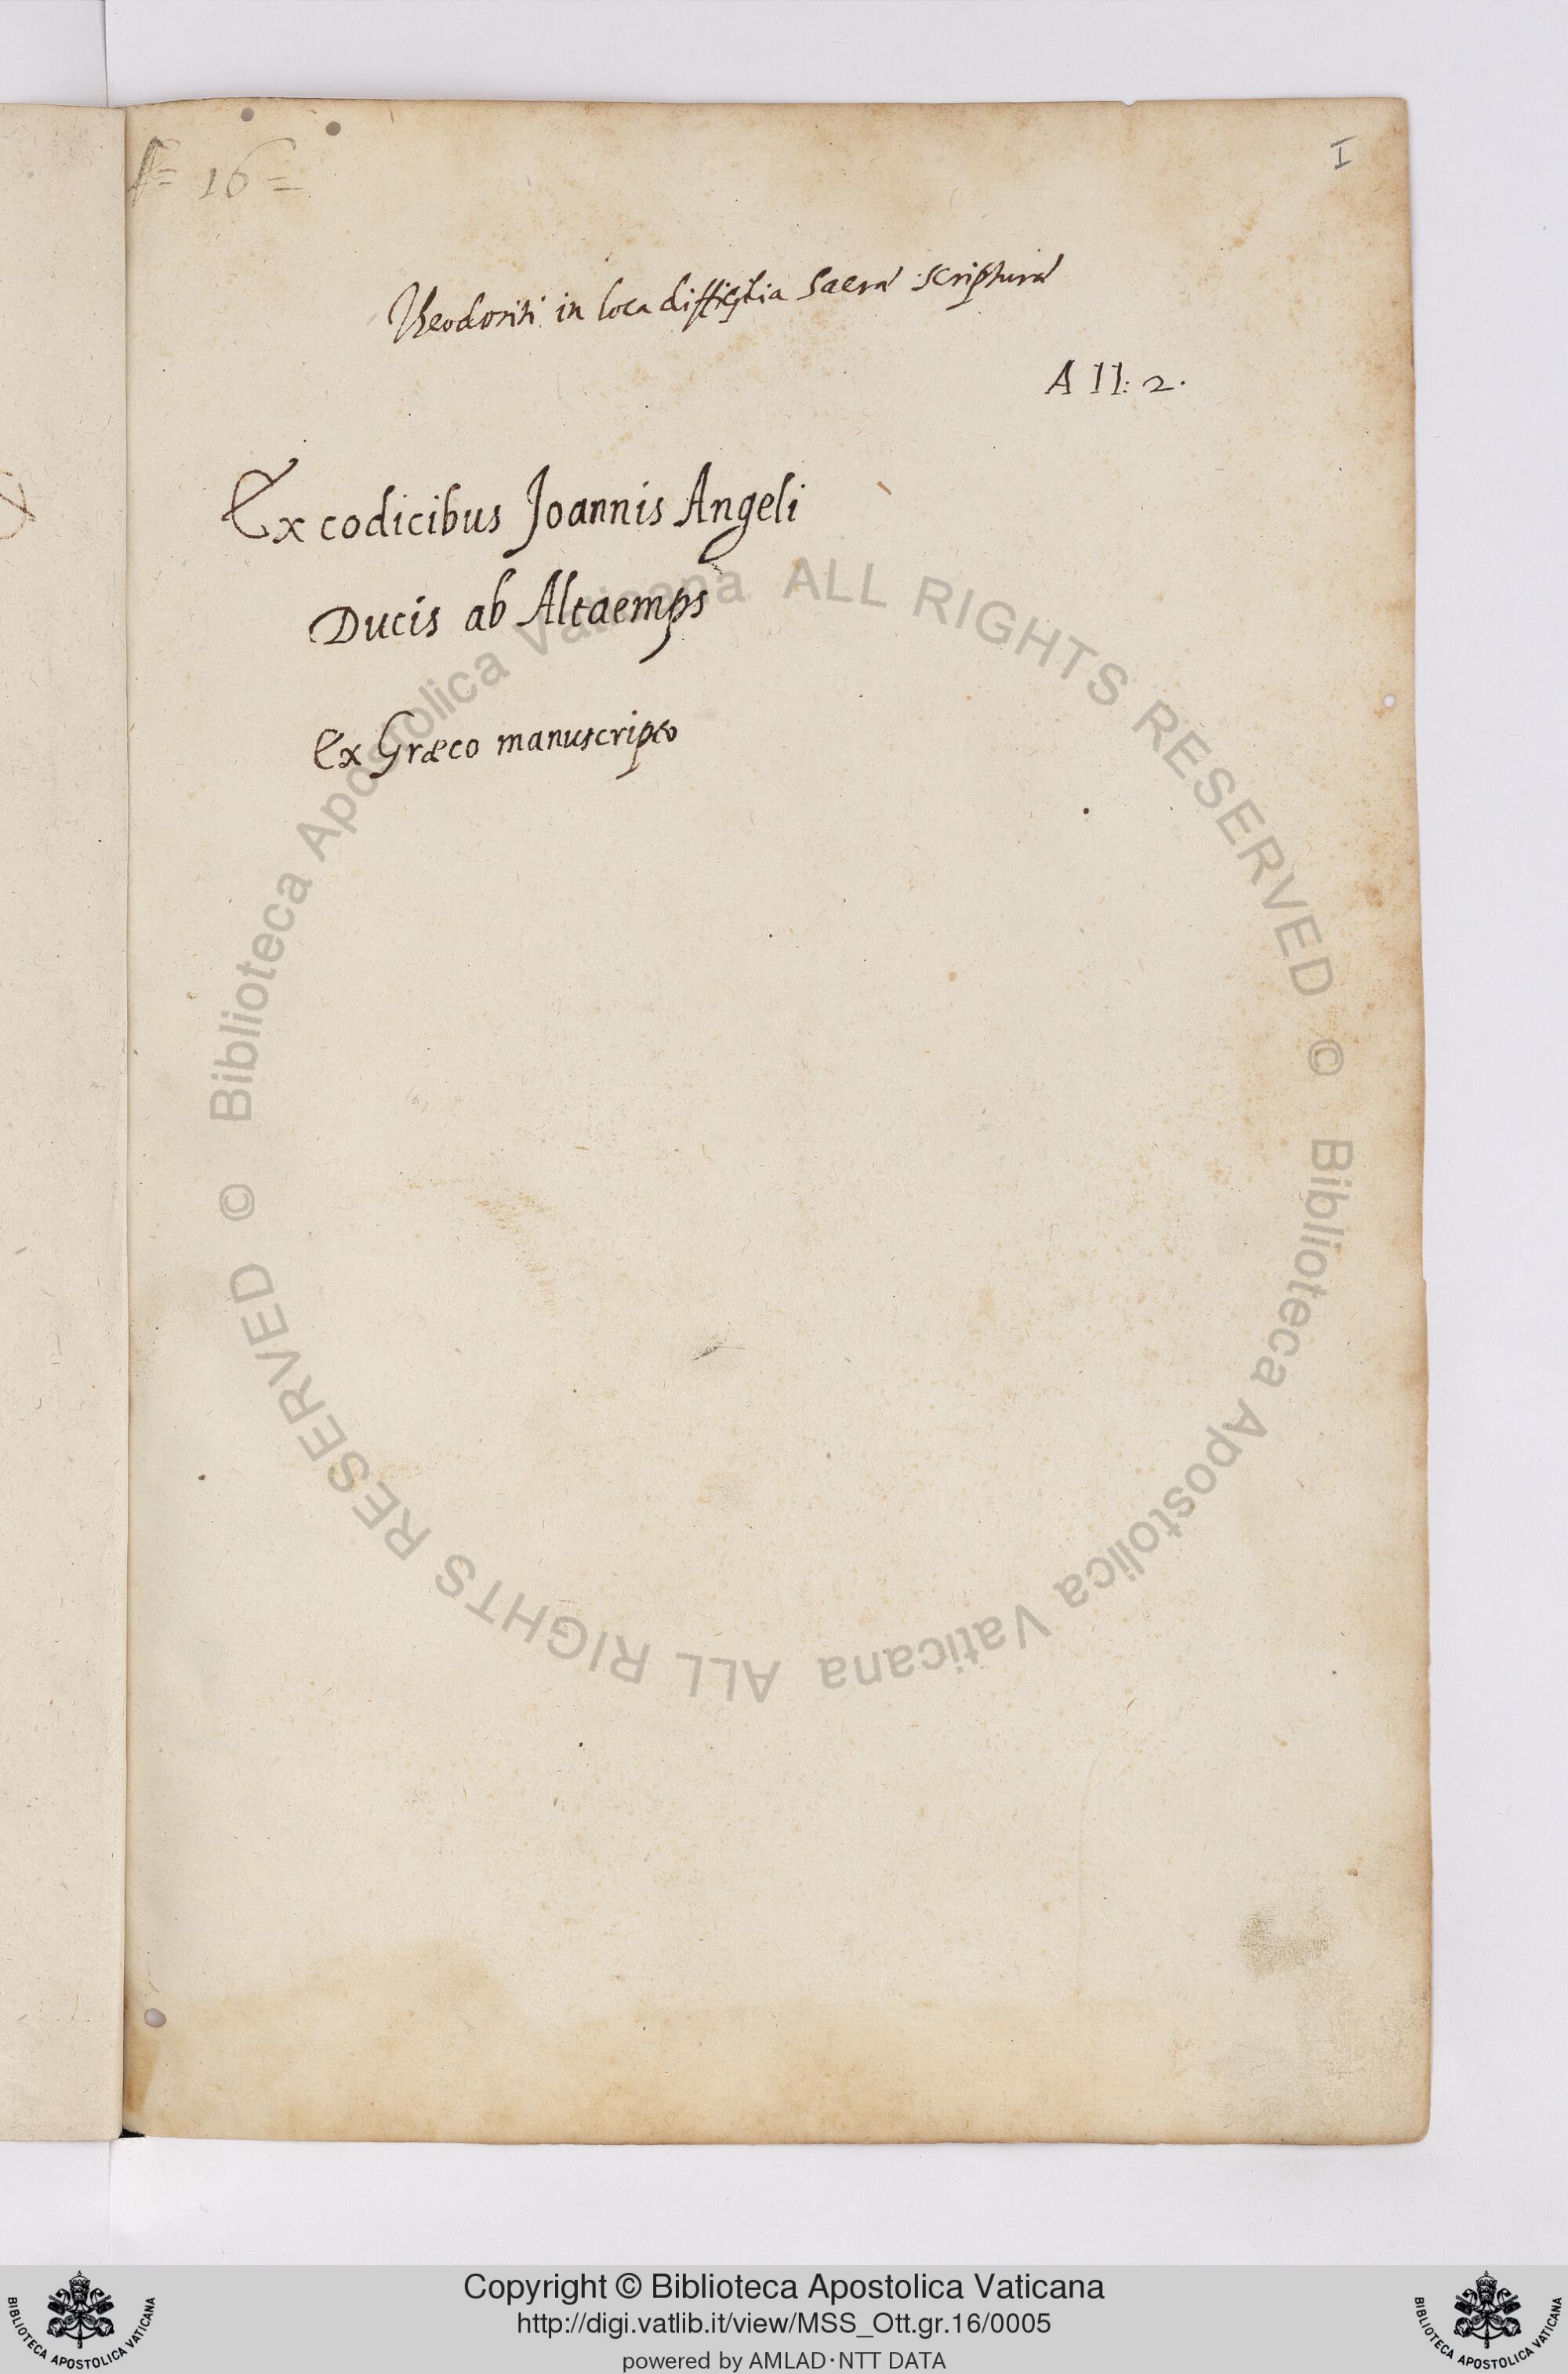 16 =
I
Theodoriti in loca difficilia Sacræ scripturæ
A II: 2.
Ex codicibus Joannis Angeli
Ducis ab Altaemps
Ex Græco manuscripto
© Biblioteca Apostolica Vaticana ALL RIGHTS RESERVED
© Biblioteca Apostolica Vaticana ALL RIGHTS RESERVED
Copyright © Biblioteca Apostolica Vaticana
http://digi.vatlib.it/view/MSS_Ott.gr.16/0005
powered by AMLAD·NTT DATA
BIBLIOTECA APOSTOLICA VATICANA
BIBLIOTECA APOSTOLICA VATICANA